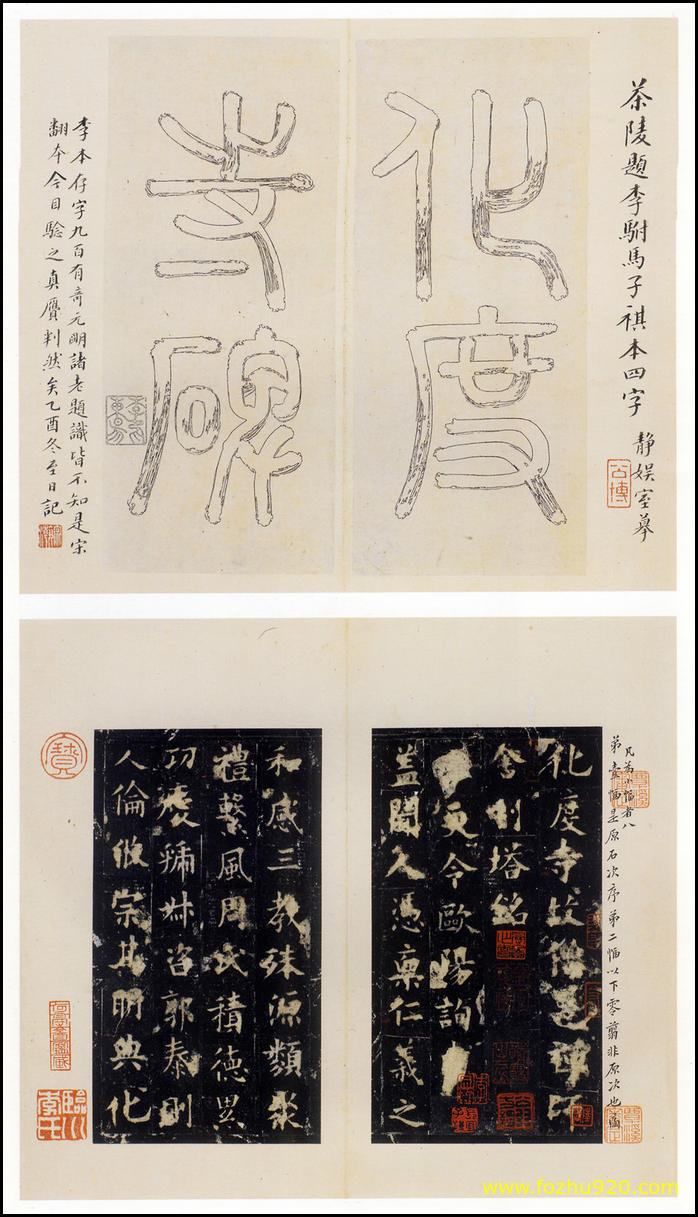 茶陵題李駙馬子祺本四字 靜娱室摹
公博
化度
寺碑
李本存字九百有奇元明諸老題識皆不知是宋
翻本今目驗之真贗判然矣乙酉冬至日記
凡為小幅者八
第壹幅是原石次序第二幅以下零翦非原次也
化度寺故僧邕禪師
舍利塔銘
更令歐陽詢
盖聞人憑禀仁義之
和感三教殊源類聚
禮繫風周氏積德異
叔咨郭泰則
人倫攸宗其明典化
寶
臨川李氏
www.fozhu920.com